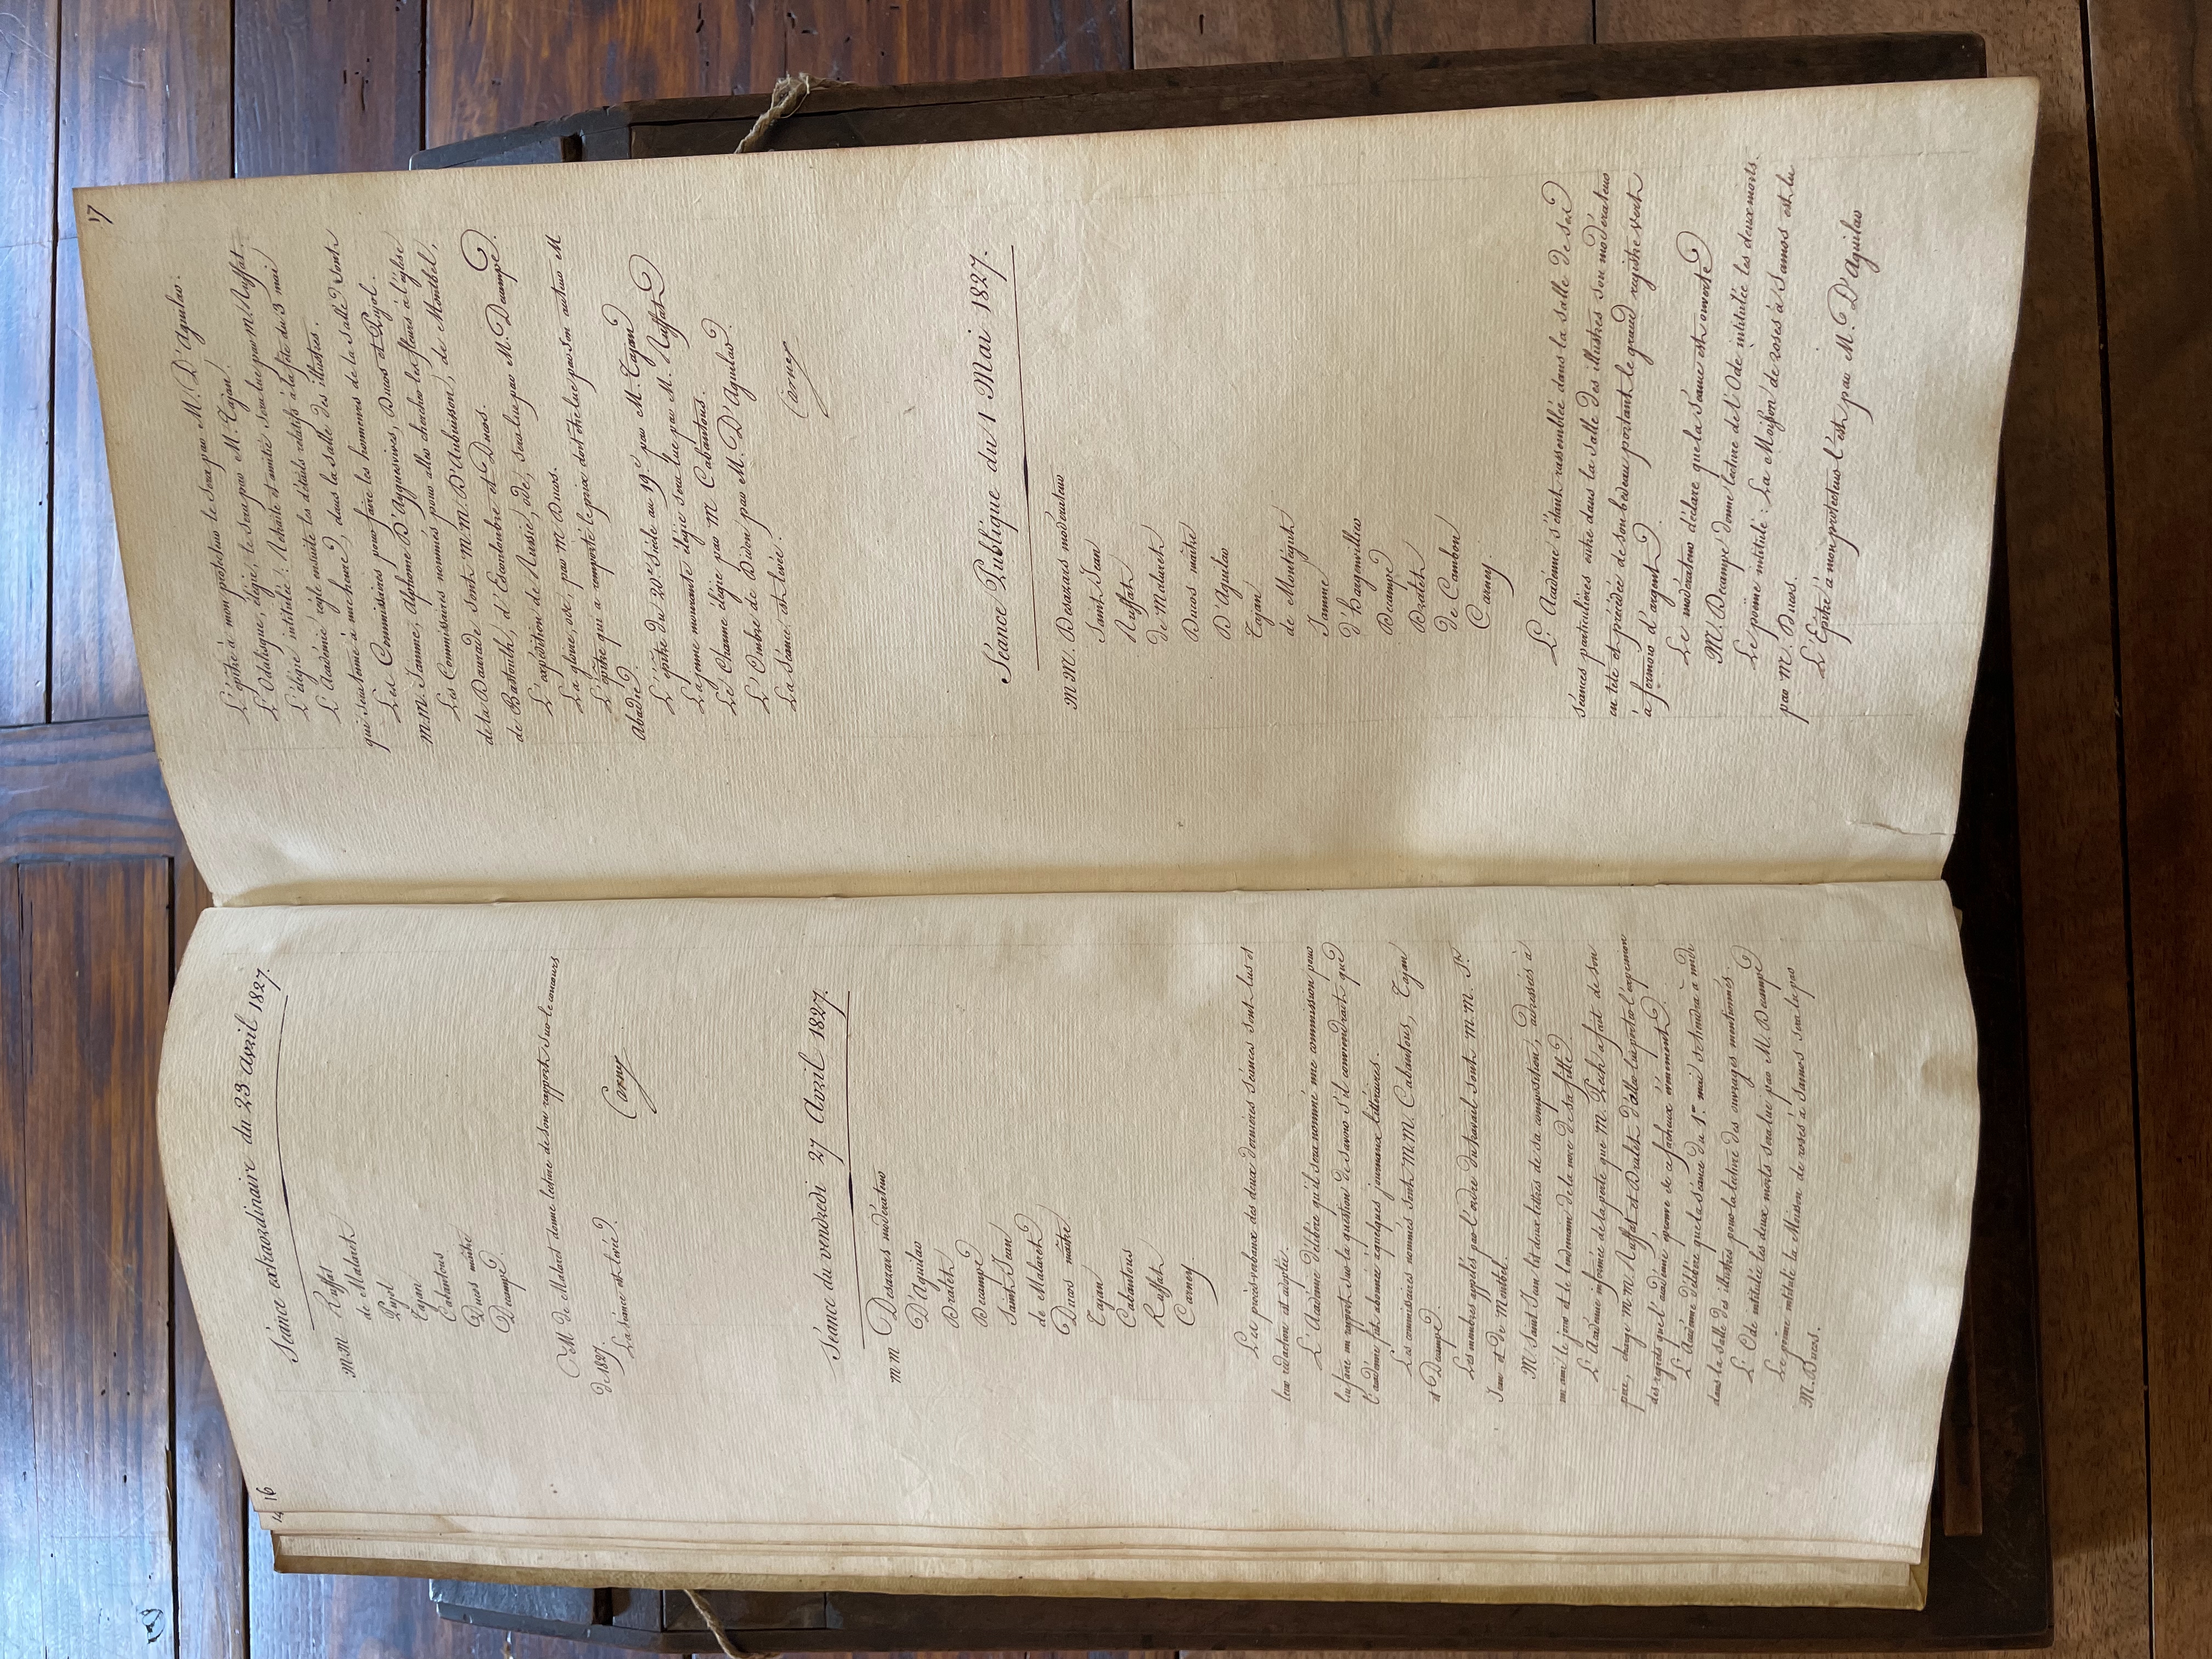 16
Séance extraordinaire du 23 avril 1827.
M.M. Ruffat
de Malaret
Pujol
Tajan
Cabantous
Ducos maître
Decampe
M. de Malaret donne lecture de son rapport sur le concours
de 1827.
La séance est levée.
Carney
Séance du vendredi 27 Avril 1827.
m m Desazars modérateur
D'Aguilar
Dralet
Decampe
Saint Jean
de Malaret
Ducos maître
Tajan
Cabantous
Ruffat
Carney
Les procès-verbaux des deux dernières séances sont lus et
leur rédaction est adoptée.
L'Académie délibère qu'il sera nommé une commission pour
lui faire un rapport sur la question de savoir s'il conviendrait que
l'académie fut abonnée à quelques journaux littéraires.
Les commissaires nommés sont M.M. Cabantous, Tajan
et Decampe.
Les membres appelés par l'ordre du travail sont M.M. St
Jean et de Montbel.
M. Saint Jean lit deux lettres de sa composition, adressées à
un ami le jour et le lendemain de la noce de sa fille.
L'Académie informée de la perte que M. Pech a fait de son
père, charge M.M. Ruffat et Dralet d'aller lui porter l'expression
des regrets que l'académie éprouve de ce fâcheux évènement.
L'Académie délibère que la séance du 1er mai se tiendra à midi
dans la salle des illustres pour la lecture des ouvrages mentionnés.
L'Ode intitulée les deux morts sera lue par M. Decampe
Le poëme intitulé la Moisson de roses à Samos sera lu par
M. Ducos.
17
L'épitre à mon protecteur le sera par M. D'Aguilar.
L'Odalisque, élégie, le sera par M. Tajan.
L'élégie intitulée : Retraite et amitié sera lue par M. Ruffat.
L'Académie règle ensuite les détails relatifs à la fête du 3 mai
qui sera tenue à une heure, dans la salle des illustres.
Les Commissaires pour faire les honneurs de la Salle sont
m.m. Jamme, Alphonse D'Aygues-vives, Ducos et Pujol.
Les Commissaires nommés pour aller chercher les fleurs à l'église
de la Daurade sont M.M. D'Aubuisson, de Montbel,
de Bastoulh, d'Escouloubre et Ducos.
L'expédition de Russie, ode, sera lue par M. Decampe.
La gloire, ode, par M. Ducos.
L'épitre qui a remporté le prix doit être lue par son auteur M
Abadie.
L'épitre du 20e siècle au 19e par M. Tajan
La jeune mourante élégie sera lue par M. Ruffat
Le Chaume élégie par M Cabantous.
L'Ombre de Didon par M. D'Aguilar.
La Séance est levée.
Carney
Séance Publique du 1 Mai 1827.
M M. Desazars modérateur
Saint Jean
Ruffat
de Malaret
Ducos maître
D'Aguilar
Tajan
de Montégut
Jamme
d'Hargenvillier
Decampe
Dralet
de Cambon
Carney.
L'Académie s'étant rassemblée dans la salle de ses
séances particulières entre dans la salle des illustres son modérateur
en tête et précédée de son bedeau portant le grand registre vert
à fermoir d'argent.
Le modérateur déclare que la séance est ouverte.
M. Decampe donne lecture de l'Ode intitulée les deux morts.
Le poëme intitulé : La Moisson de roses à Samos est lu
par M. Ducos.
L'Epître à mon protecteur l'est par M. D'Aguilar